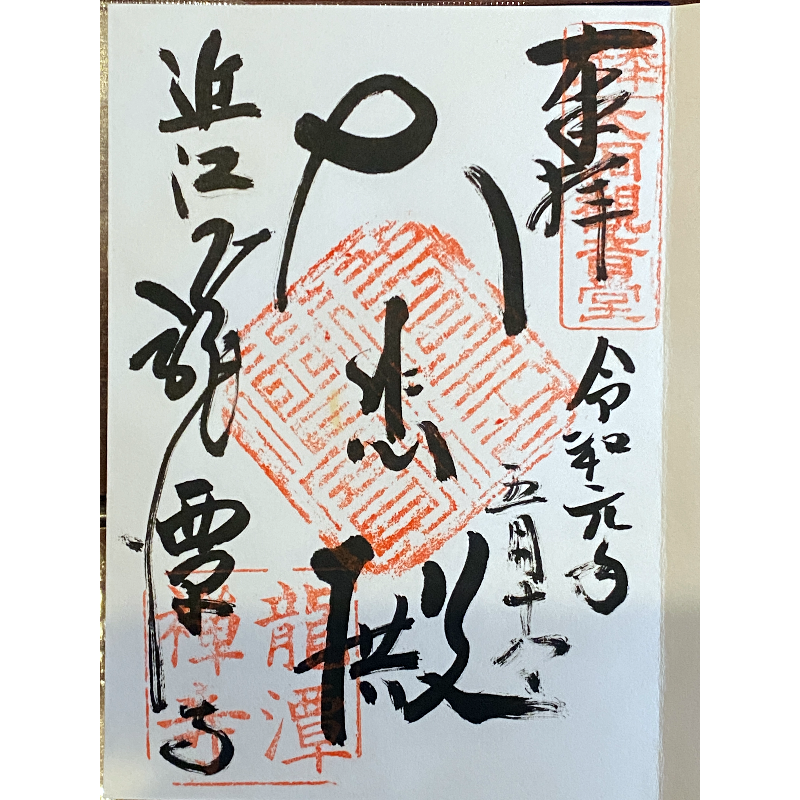 奉拝
令和元年
五月十八日
大悲殿
近江
龍潭寺
観音堂
龍潭
禅寺